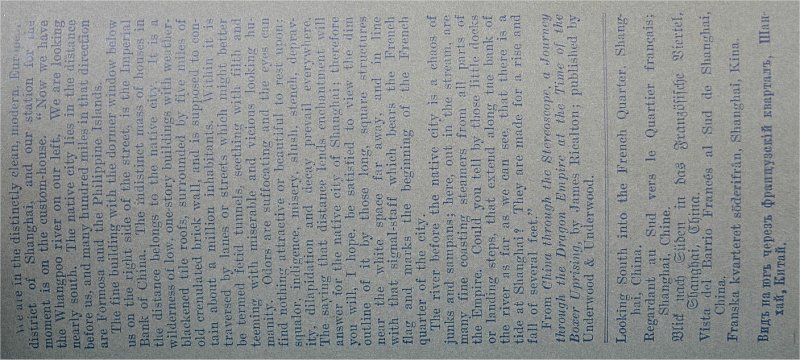 We are in the distinctly clean, modern,
district of Shanghai, and our station for the
moment is on the custom-house. "Now we have
the Whangpoo river on our left. We are looking
nearly south. The native city lies in the distance
before us, and many hundred miles in that direction
are Formosa and the Philippine islands.
The fine building with the dormer window below
us on the right side of the street, is the Imperial
Bank of China. The indistinct mass of houses in
the distance belongs to the native city. It is a
wilderness of low, one-story buildings with weather-
blackened tile roofs, surrounded by five miles of
old crenulated brick wall, and is supposed to con-
tain about a million inhabitants. Within it is
traversed by lanes or streets which might better
be termed fetid tunnels, seething with filth and
teeming with miserable and vicious looking hu-
manity. Odors are suffocating and the eyes can
find nothing attractive or beautiful to rest upon:
squalor, indigence, misery, slush, stench, deprav-
ity, dilapidation and decay prevail everywhere.
The saying that distance lends enchantment will
answer for the native city of Shanghai; therefore
you will, I hope, be satisfied to view the dim
outline of it by those long, square structures
near the white space far away, and in line
with that signal-staff which bears the French
flag and marks the beginning of the French
quarter of the city.
The river before the native city is a chaos of
junks and sampans; here, out in the stream, are
many fine coasting steamers from all parts of
the Empire. Could you tell by those little docks
or landing steps, that extend along the bank of
the river as far as we can see, that there is a
tide at Shanghai? They are made for a rise and
fall of several feet."
From China through the Stereoscope, a Journey
through the Dragon Empire at the Time of the
Boxer Uprising, by James Ricalton; published by
Underwood & Underwood.
Looking South into the French Quarter, Shang-
hai, China.
Regardant au Sud vers le Quartier français;
Shanghai, Chine.
Blick nach Süden in das Französische Viertel,
Shanghai, China.
Vista del Barrio Francés al Sud de Shanghai,
China.
Franska kvarteret söderifrån, Shanghai, Kina.
Видъ на югъ черезъ Французскій кварталъ, Шан-
хай, Китай.